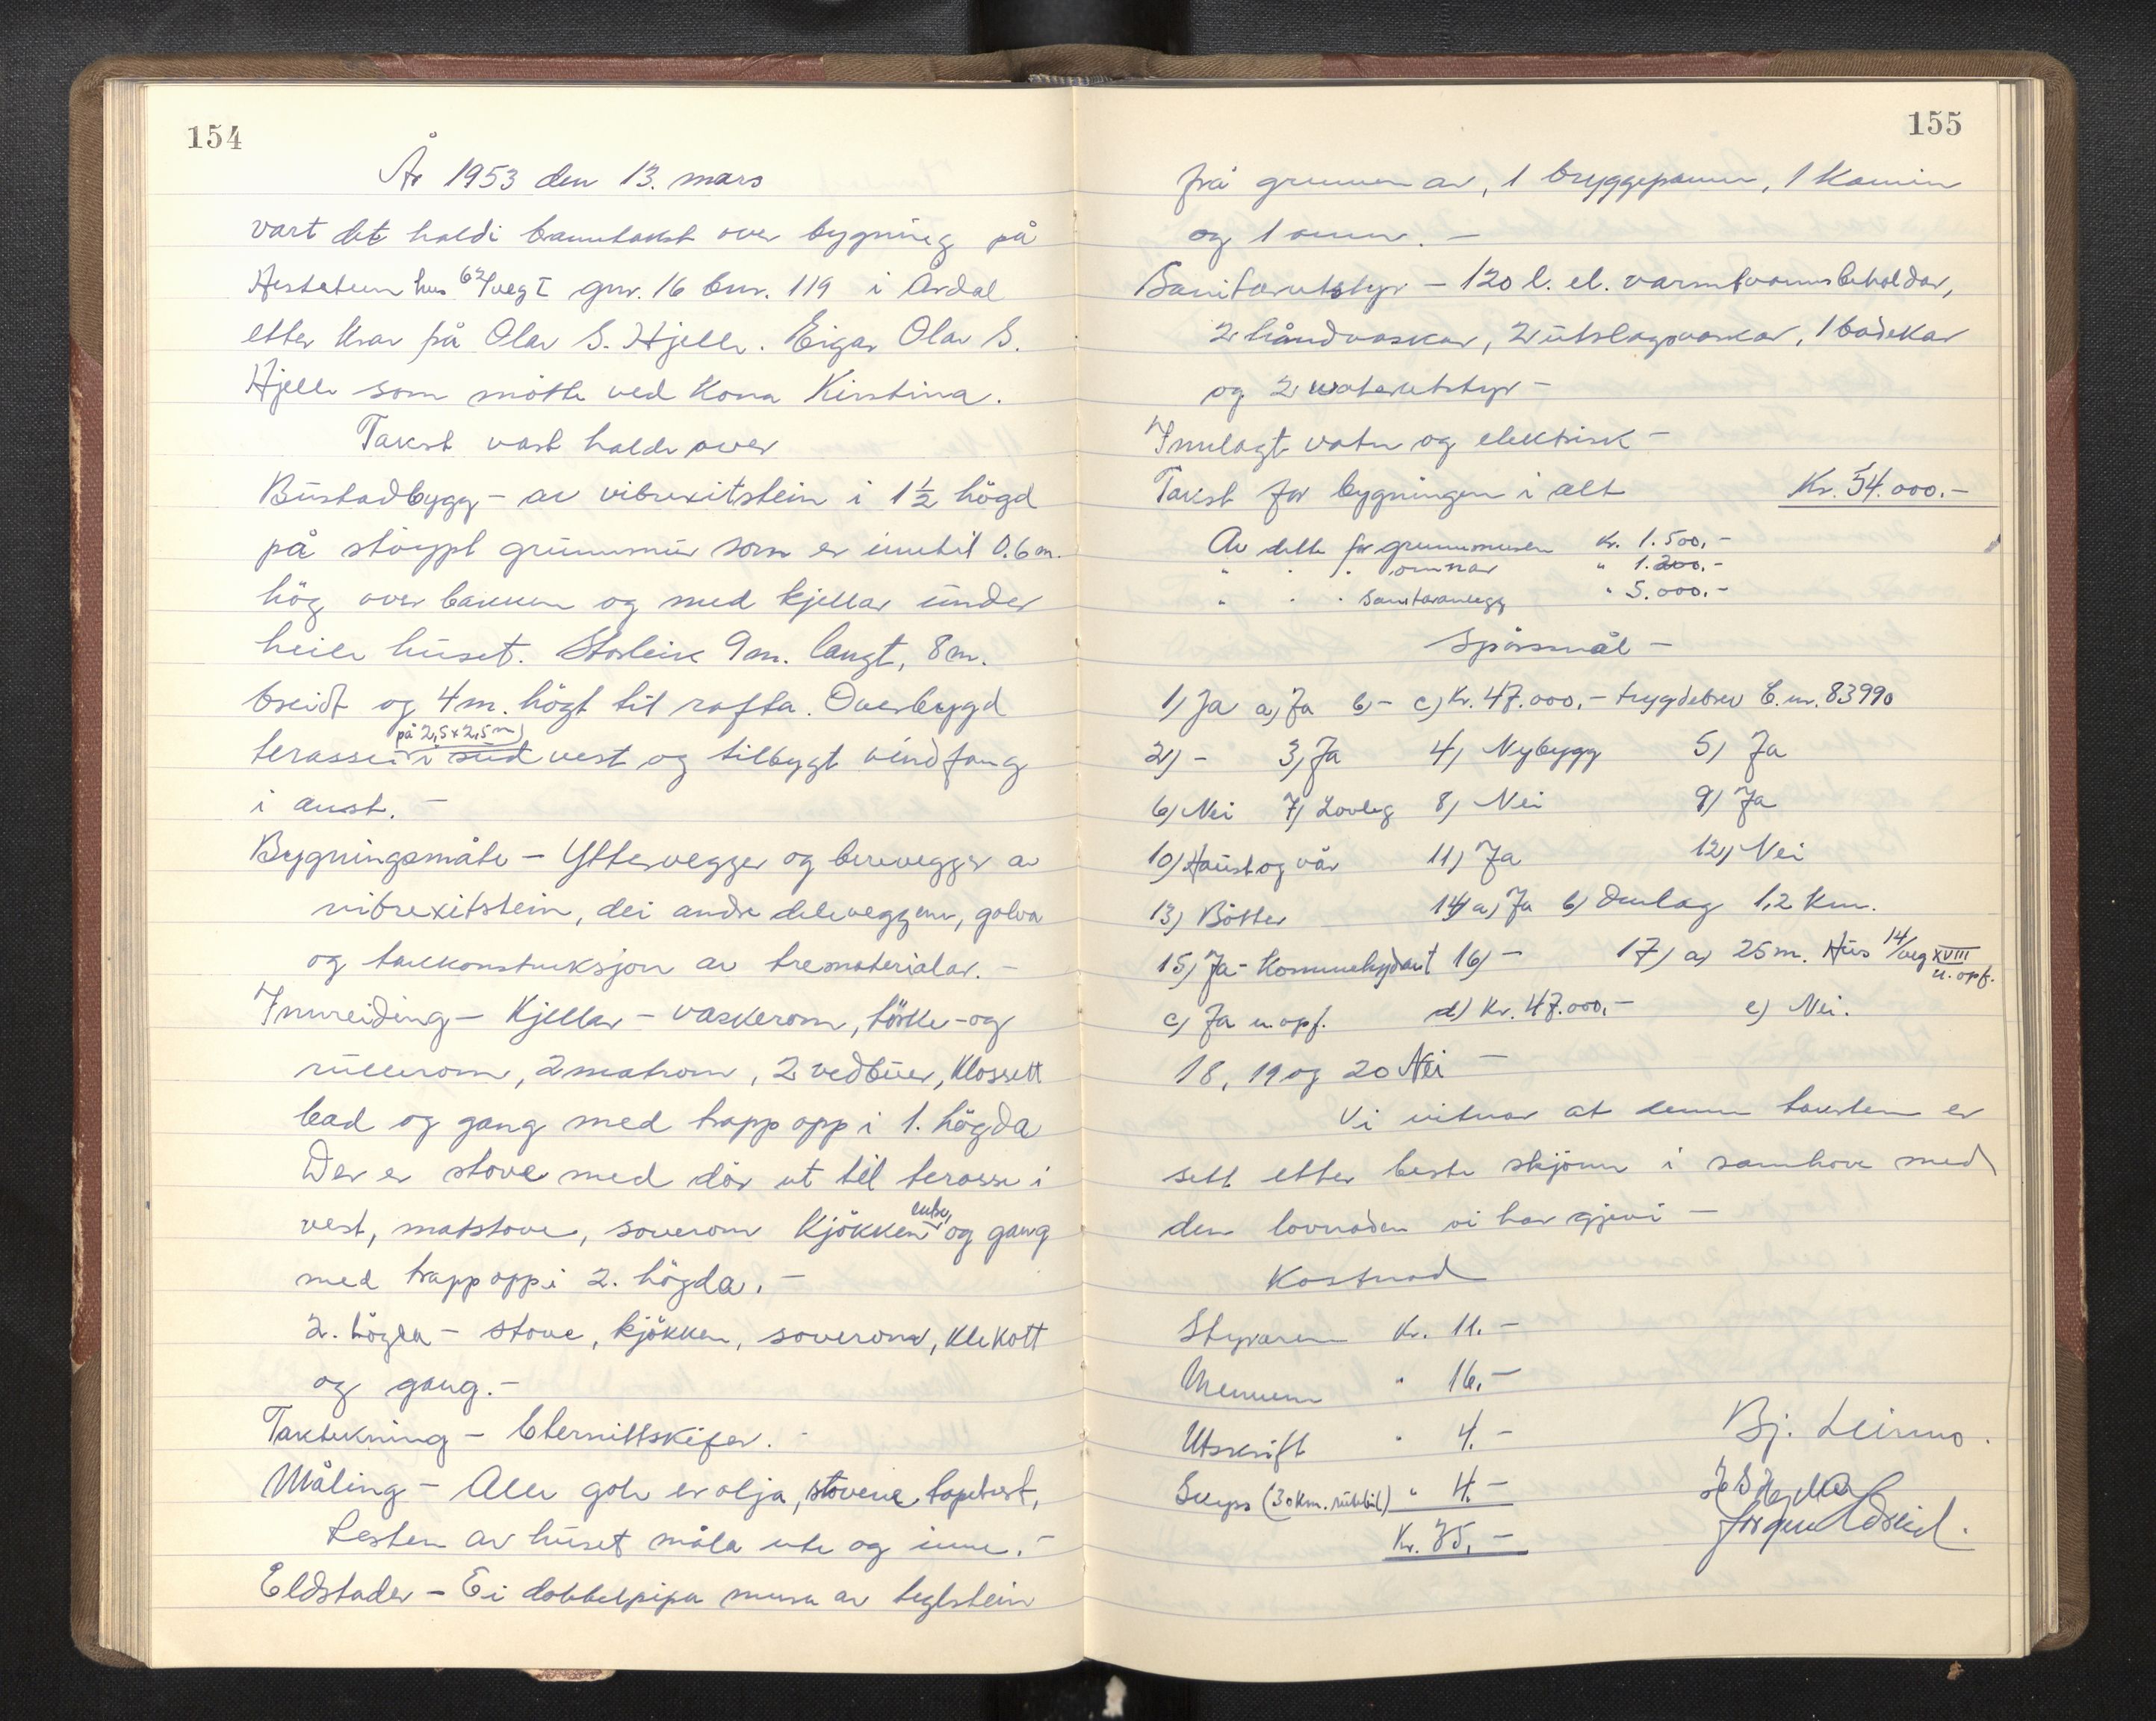 154
År 1953 den 13. mars
vart det haldi branntakst over bygning på
Hestetun hus 62/veg I gnr. 16 bnr. 119 i Årdal
etter krav på Olav S. Hjelle. Eigar Olav S.
Hjelle som møtte ved kona Kirstina.
Takst vart halde over
Bustadbygg - av vibrexitstein i 1½ högd
på stöypt grunnmur som er inntil 0.6 m.
hög over bakken og med kjellar under
heile huset. Storleik 9 m. langt, 8 m.
breidt og 4 m. högt til rafta. Overbygd
på 2,5 x 2,5 m
terasse i sud vest og tilbygt vindfang
i aust. -
Bygningsmåte - Yttervegger og berevegger av
vibrexitstein, dei andre deleveggene, golva
og takkonstruksjon av trematerialar. -
Innreiding - Kjellar - vaskerom, törke- og
rullerom, 2 matrom, 2 vedbuer, klossett
bad og gang med trapp opp i 1. högda
Der er stove med dör ut til terasse i
vest, matstove, soverom kjökken entre, og gang
med trapp opp i 2. högda. -
2. högda - stove, kjökken, soverom, klekott
og gang. -
Taktekning - Eternittskifer. -
Måling - Alle golv er olja, stovene tapetsert,
resten av huset måla ute og inne. -
Eldstader - Ei dobbelpipa mura av teglstein
155
frå grunnen av, 1 bryggepanne, 1 kamin
og 1 omn. -
Sanitærutstyr - 120 l. el. varmtvannsbeholdar,
2 håndvaskar, 2 utslagsvaskar, 1 badekar
og 2 waterutstyr -
Innlagt vatn og elektrisk -
Takst for bygningen i alt Kr. 54.000.-
Av dette for grunnmuren Kr. 1.500,-
" " " omnar " 1.200.-
" " " sanitæranlegg " 5.000.-
Spörsmål -
1) Ja a) Ja b) - c) Kr. 47.000.- trygdebrev E.nr. 83990
2) - 3) Ja 4) Nybygg 5) Ja
6) Nei 7) Lovleg 8) Nei 9) Ja
10) Haust og vår 11) Ja 12) Nei
13) Bötter 14) a) Ja b) Omlag 1,2 km.
15) Ja - Kommunehydrant 16) - 17) a) 25 m. Hus 14/veg XVIII
u. opf.
c) Ja u. opf. d) Kr. 47.000.- e) Nei.
18, 19 og 20 Nei -
Vi vitnar at denne taksten er
sett etter beste skjönn i samhøve med
den lovnaden vi har gjevi -
Kostnad
Styraren Kr. 11. -
Mennene " 16. -
Utskrift " 4. -
Skyss (30 km. rutebil) " 4. -
Kr. 35, -
Bj. Leirmo.